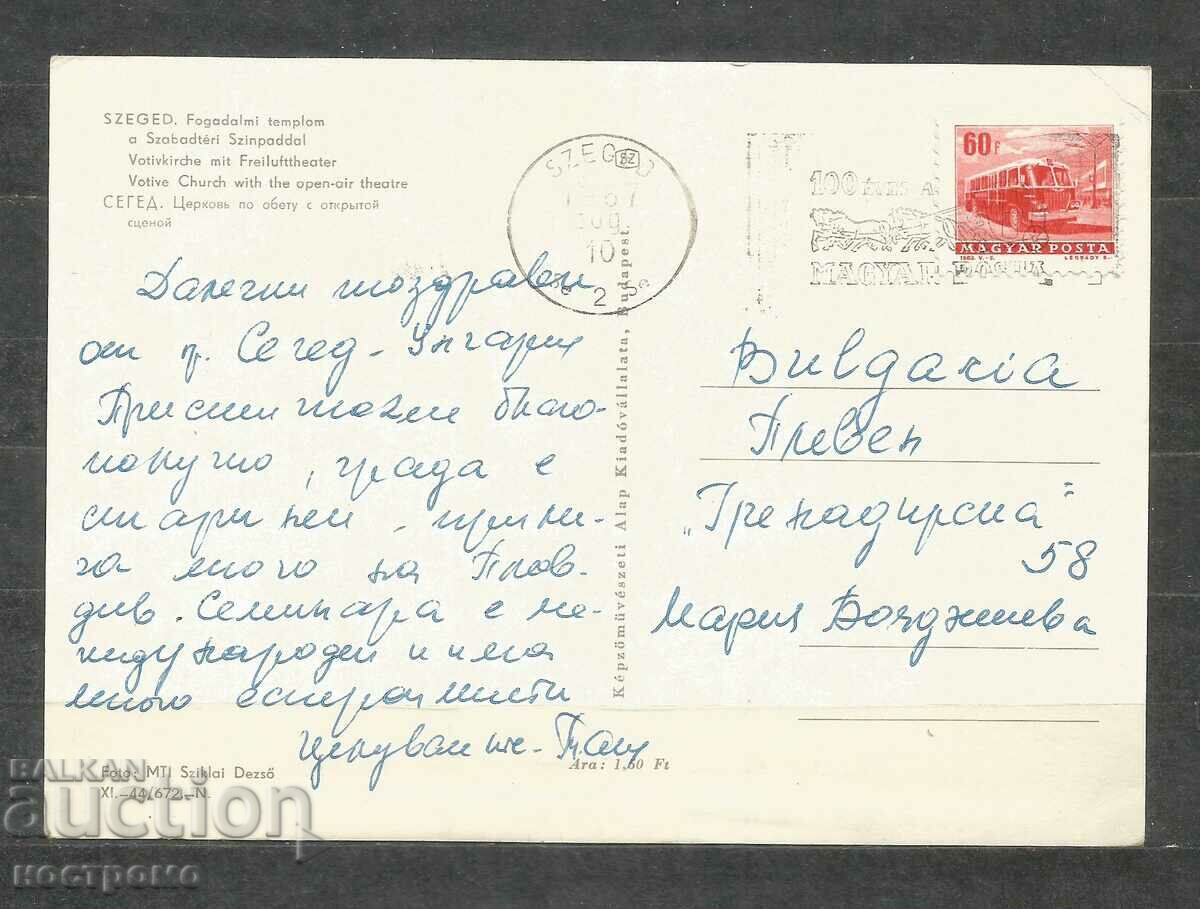 SZEGED. Fogadalmi templom
a Szabadtéri Szinpaddal
Votivkirche mit Freilufttheater
Votive Church with the open-air theatre
СЕГЕД. Церковь по обету с открытой
сценой
Далечни поздрави
от гр. Сегед - Унгария
Пристигнахме благо-
получно, града е
старинен, прили-
ча много на Плов-
див. Семинара е ме-
ждународен и има
много есперантисти
Целувам те -
SZEGED
SZ
67
10
2
100 ÉVES A
MAGYAR POSTA
60 F
MAGYAR POSTA
Képzőművészeti Alap Kiadóvállalata, Budapest.
Bulgaria
Плевен
„Гренадирска"
58
Мария Бояджиева
Foto: MTI Sziklai Dezső
XI.-44/672.-N.
Ára: 1,60 Ft
BALKAN
auction
костромо